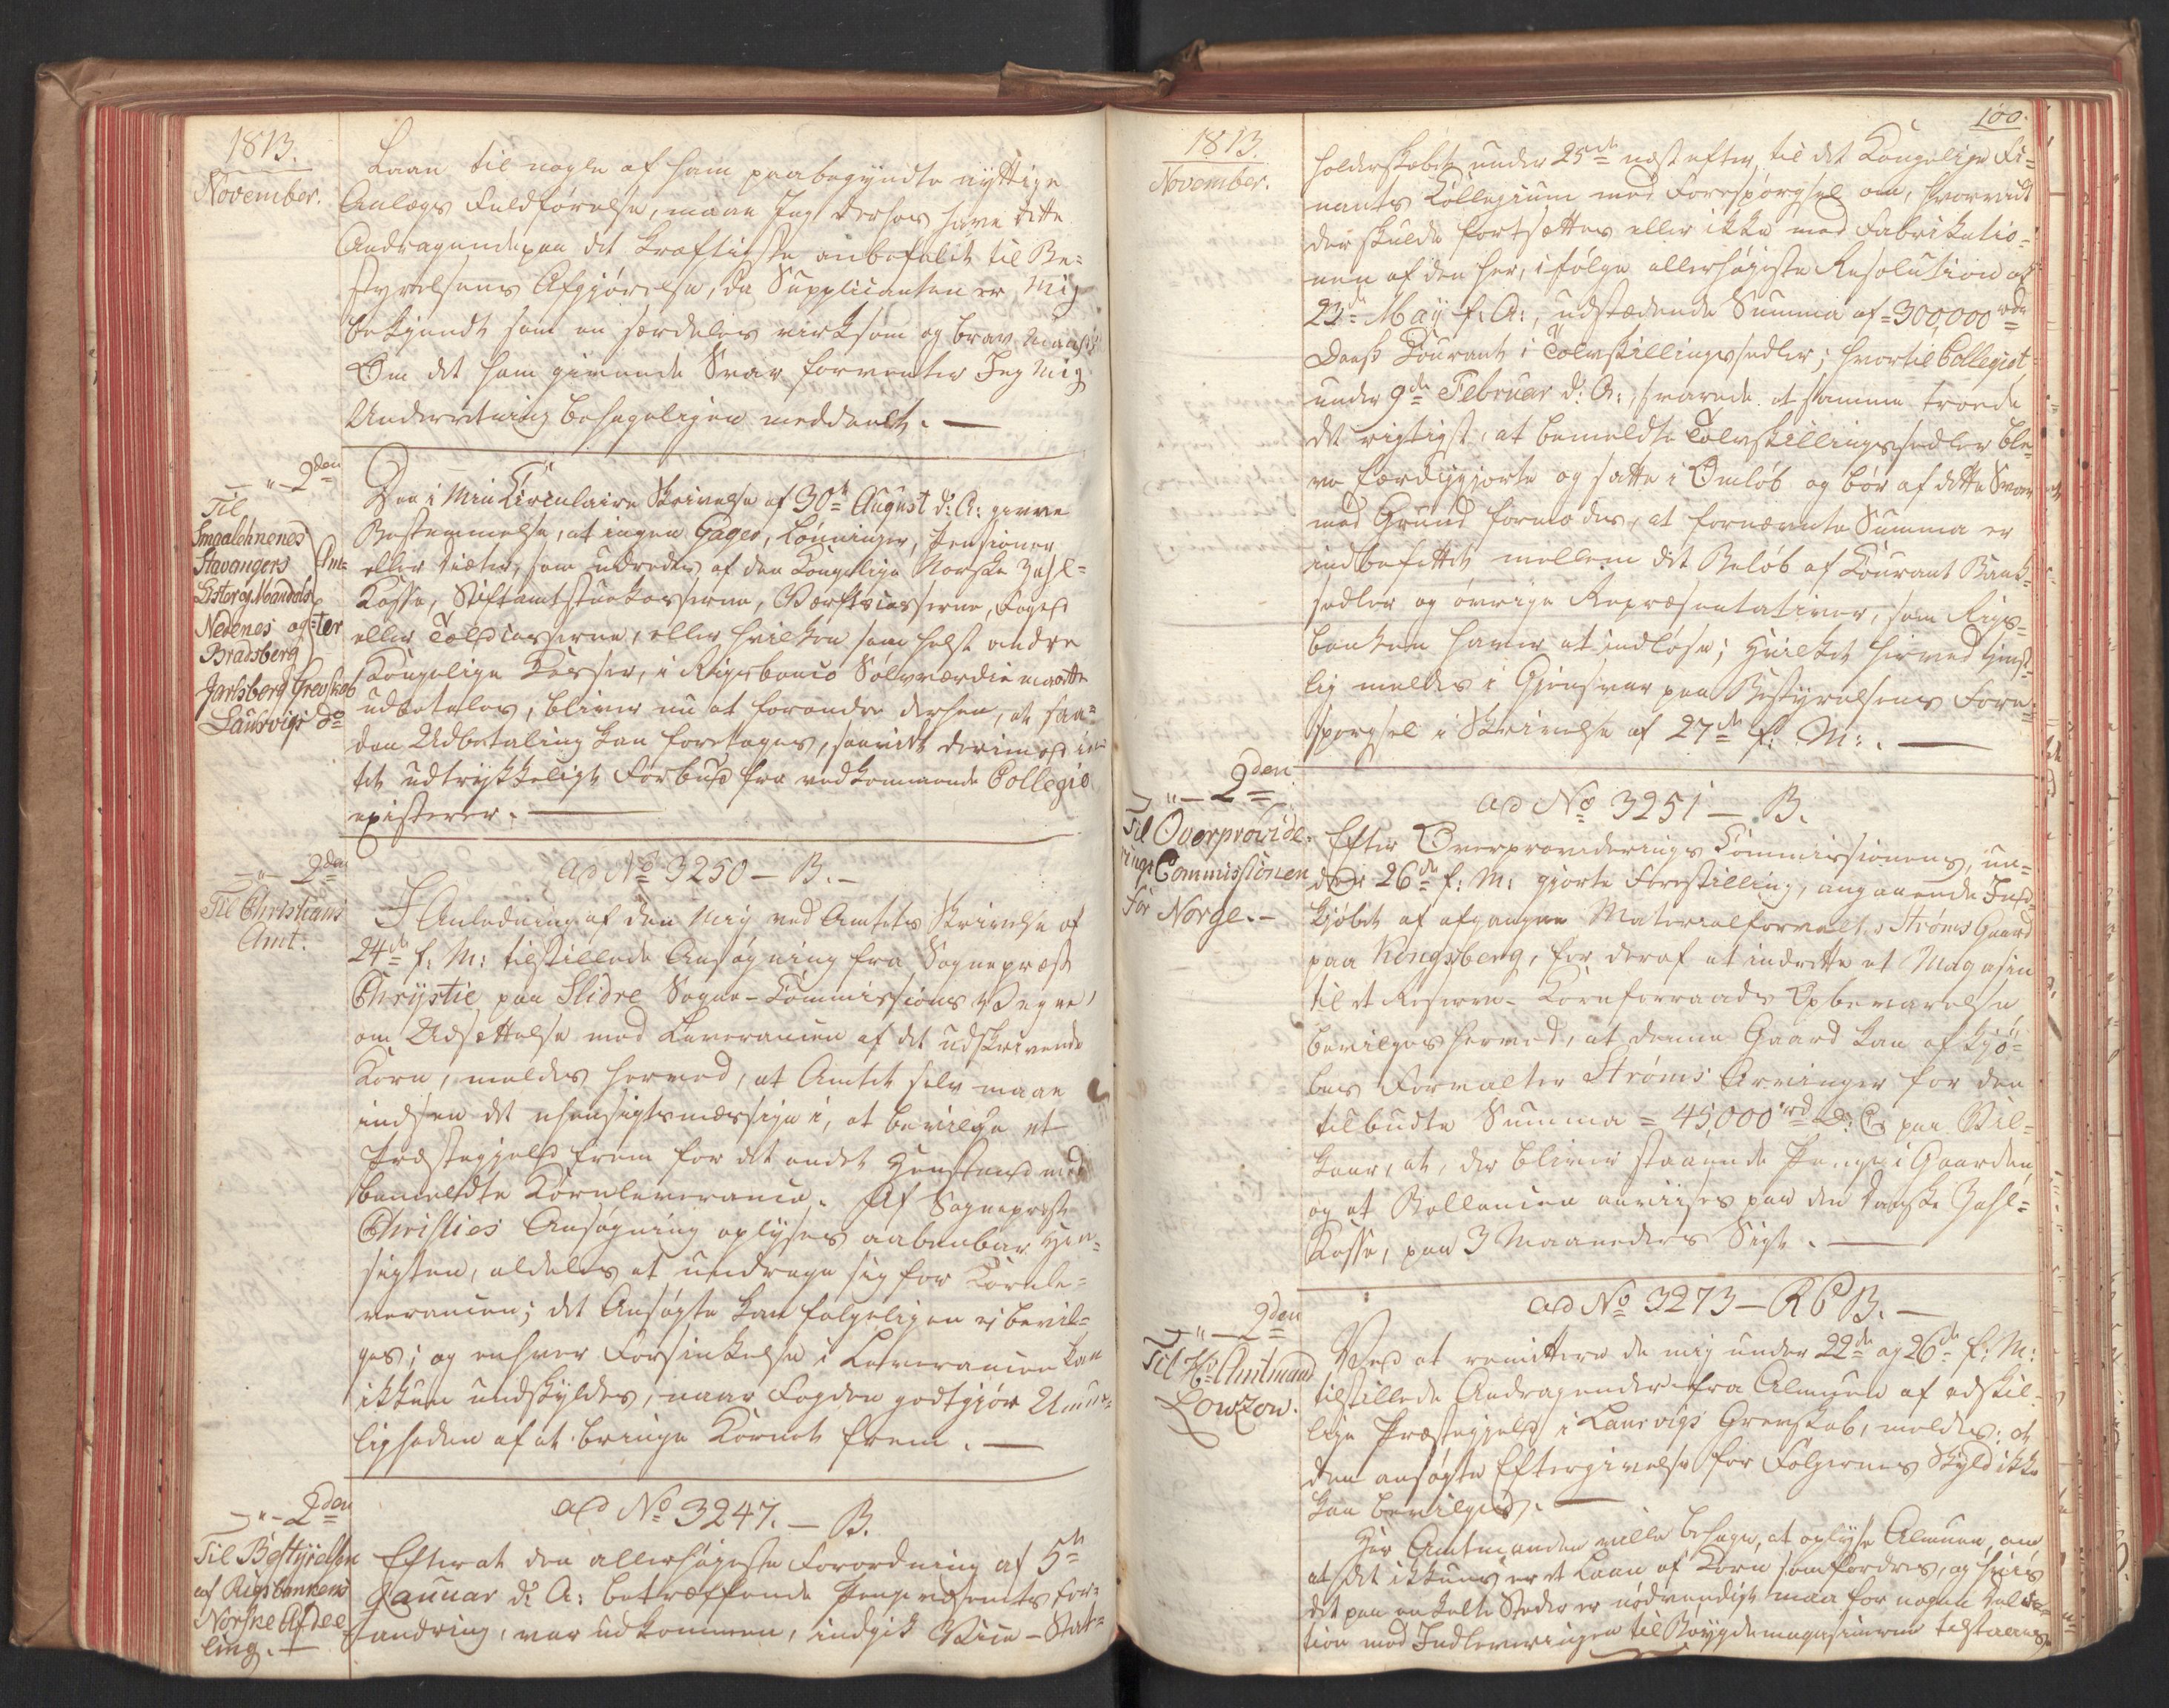 1813.
November.
Laan til nogle af ham paabegyndte nyttige
Anlægs Fuldførelse, maae Jeg derhos have dette
Andragende paa det kraftigste anbefalet til Be-
styrelsens Afgjørelse, da Supplicanten er mig
bekjendt som en særdeles virksom og brav Mand.
Om det ham givende Svar forventer Jeg mig
Underretning behageligen meddeelt. —
— " — 2den
Til
Smaalehnenes
Stavangers
Lister og Mandals
Nedenes og
Bradsberg
Amter
Jarlsberg Grevskab
Laurvigs do
Den i min Circulaire Skrivelse af 30te August d: A: givne
Bestemmelse, at ingen Gager, Lønninger, Pensioner
eller Diæter, som udredes af den Kongelige Norske Zahl-
Kasse, Stiftamtstuekasserne, Værftscasserne, Foged
eller Toldcasserne, eller hvilken som helst andre
Kongelige Casser, i Rigsbanco Sølvværdie maatte
udbetales, bliver nu at forandre derhen, at saa-
dan Udbetaling kan foretages, saavidt derimod in-
tet udtrykkeligt Forbud fra vedkommende Collegio
existerer. —
— " — 2den
Til Christians
Amt.
ad No 3250 — B. —
I Anledning af den mig ved Amtets Skrivelse af
24de f: M: tilstillede Ansøgning fra Sognepræst
Chrystie paa Slidre Sogne-Commissions Vegne,
om Udsættelse med Leverancen af det udskrevne
Korn, meldes herved, at Amtet selv maae
indsee det uhensigtsmæssige i, at bevilge et
Præstegjeld frem for det andet Henstand med
bemeldte Kornleverance. Af Sognepræst
Christies Ansøgning oplyses aabenbar Hen-
sigten, aldeles at unddrage sig for Kornle-
verancen; det Ansøgte kan følgeligen ei bevil-
ges; og enhver Forsinkelse i Leverancen kan
ikkun undskyldes, naar Fogden godtgjør Umue-
ligheden af at bringe Kornet frem. —
— " — 2den
Til Bestyrelsen
af Rigsbankens
Norske Afdee-
ling. —
ad No 3247. — B.
Efter at den allerhøieste Forordning af 5te
Januar d: A: betræffende Pengevæsenets For-
andring, var udkommen, indgik Vice-Stat-
100.
1813.
November.
holderskabet under 25de næst efter, til det Kongelige Fi-
nants Collegium med Forespørgsel om, hvorvidt
der skulde fortsættes eller ikke med Fabrikatio-
nen af den her, ifølge allerhøieste Resolution af
23de May f: A:, udstædende Summa af = 300,000 rdr
Dansk Courant i Tolvskillingssedler; hvortil Collegiet
under 9de Februar d: A:, svarede at samme troede
det rigtigst, at bemeldte Tolvskillingssedler ble-
ve færdiggjorte og satte i Omløb og bør af dette Svar
med Grund formodes, at fornævnte Summa er
indbefattet mellem det Beløb af Courant Bank-
sedler og øvrige Repræsentativer, som Rigs-
banken haver at indløse; Hvilket herved tjenst-
lig meldes i Gjensvar paa Bestyrelsens Fore-
spørgsel i Skrivelse af 27de f: M:. —
— " — 2den
Til Overprovide-
rings Commissionen
for Norge. —
ad No 3251 — B.
Efter Overprovideringscommissionens, un-
der 26de f: M: gjorte Forestilling, angaaende Ind-
kjøbet af afgangne Materialforvalter Strøms Gaard
paa Kongsberg, for deraf at indrette et Magasin
til et Reserve-Kornforraads Opbevarelse,
bevilges herved, at denne Gaard kan afkjø-
bes Forvalter Strøms Arvinger for den
tilbudte Summa = 45,000 rd D: C: paa Vil-
kaar, at, der bliver staaende Penge i Gaarden,
og at Ballancen anviises paa den Danske Zahl-
Kasse, paa 3 Maaneders Sigt. —
— " — 2den
Til Hr Amtmand
Lowzow.
ad No 3273 — R C B. —
Ved at remittere de mig under 22de og 26de f: M:
tilstillede Andragender fra Almuen af adskil-
lige Præstegjeld i Laurvigs Grevskab, meldes: at
den ansøgte Eftergivelse for Følgernes Skyld ikke
kan bevilges. —
Hr Amtmanden ville behage, at oplyse Almuen, om
at det ikkuns er et Laan af Korn som fordres, og hvis
det paa enkelte Steder er nødvendigt maa for nogen
tion med Indleveringen til Bøygdemagasinerne tilstaaes